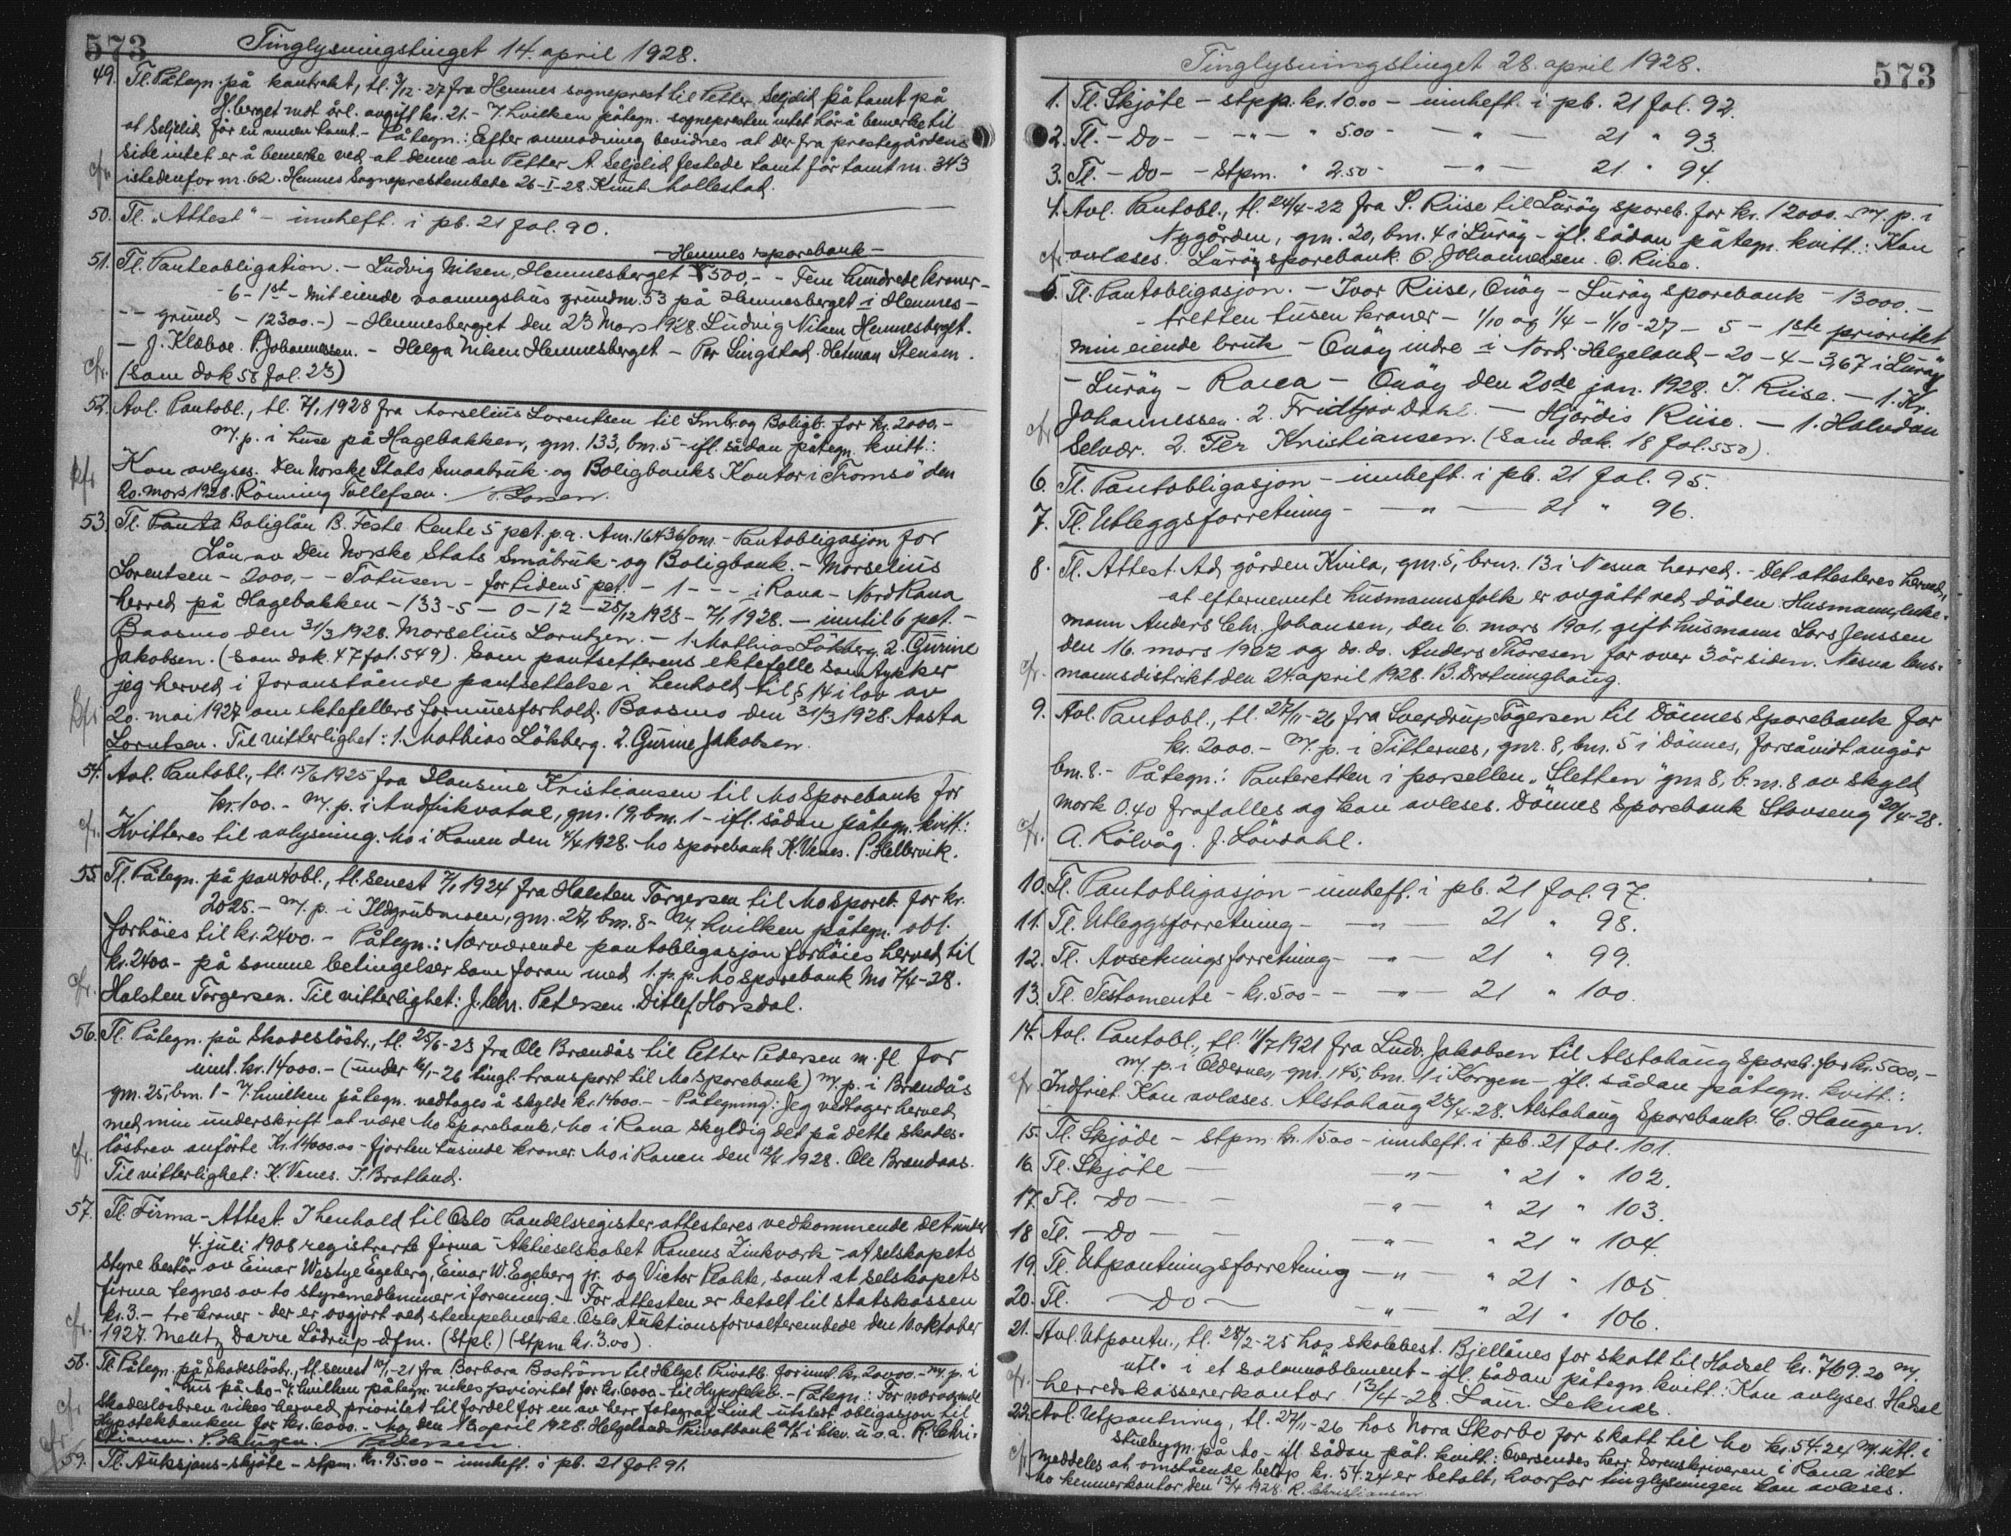 573
Tinglysningstinget 14. april 1928.
49. Tl. Påtegn. på kontrakt, tl. 3/12-27 fra Hemnes sogneprest til Petter Seljelid på tomt på
H.berget mot årl. avgift kr. 21.- v/ hvilken påtegn. sognepresten intet har å bemerke til
at Seljelid får en annen tomt.- Påtegn.: Efter anmodning bevidnes at der fra prestegårdens
side intet er å bemerke ved at denne av Petter A. Seljelid festede tomt får tomt nr. 343
cfr. istedenfor nr. 62. Hemnes Sogneprestembede 26-I-28. Knut Lollestad.
50. Tl. "Attest" - innheft. i pb. 21 fol. 90.
- Hemnes sparebank -
51. Tl. Panteobligation. - Ludvig Nilsen, Hemnesberget - 500,- - Fem hundrede kroner -
- 6 - 1st - Mit eiende vaaningshus grundnr. 53 på Hemnesberget i Hemnes -
- - grund - 12300.-) - Hemnesberget den 23 Mars 1928. Ludvig Nilsen Hemnesberget.
- J. Klæboe. P. Johannessen. - Helga Nilsen Hemnesberget - Per Singstad. Herman Stensen.
cfr. (Som dok 58 fol. 23)
52. Avl. Pantobl., tl. 7/1 1928 fra Morselius Lorentsen til Smbr. og Boligb. for kr. 2000.-
m/ p. i huse på Hagebakken, gnr. 133, bnr. 5 - ifl. sådan påtegn. kvitt.:
kfr Kan avlyses. Den Norske Stats Smaabruk- og Boligbanks Kontor i Tromsö den
20. mars 1928. Rönning Tollefsen. Larsen.
53. Tl. Panto Boliglån B. Feste Rente 5 pct. p.a. Anr. 16436/omr. - Pantobligasjon for
Lån av Den Norske Stats Småbruk- og Boligbank. - Morselius
Lorentsen - 2000,- - Totusen - for tiden 5 pct. - 1 - - - i Rana - Nord Rana
herred på Hagebakken - 133-5 - 0-12 - 28/12 1928 - 7/1 1928. - inntil 6 pct. -
Baasmo den 31/3 1928. Morselius Lorntzen. - 1. Mathias Lökberg. 2. Gurine
Jakobsen. (Som dok. 47 fol. 549). Som pantsetterens ektefelle samtykker
jeg herved i foranstaaende pantsettelse i henhold til § 14 i lov av
kfr 20. mai 1927 om ektefellers formuesforhold. Baasmo den 31/3 1928. Aasta
Lorntsen. Til vitterlighet: 1. Mathias Lökberg. 2. Gurine Jakobsen.
54. Avl. Pantobl., tl. 15/6 1925 fra Hansine Kristiansen til Mo Sparebank for
kr. 100.- m/ p. i Andfiskvatne, gnr. 19, bnr. 1 - ifl. sådan påtegn. kvitt.:
cfr. Kvitteres til avlysning. Mo i Ranen den 4/4 1928. Mo sparebank K. Venes. P. Hellervik.
55. Tl. Påtegn. på pantobl., tl. senest 7/1 1924 fra Halsten Torgersen til Mo Spareb. for kr.
2025.- m/ p. i Ildgrubmoen, gnr. 27, bnr. 8 - v/ hvilken påtegn. obl.
forhöies til kr. 2400.- Påtegn.: Nærværende pantobligasjon forhöies herved til
kr. 2400.- på samme betingelser som foran med 1. p. p. Mo sparebank Mo 7/4-28.
cfr. Halsten Torgersen. Til vitterlighet: J. Chr. Petersen. Ditlef Horsdal.
56. Tl. Påtegn. på Skadeslösbr., tl. 25/6-23 fra Ole Brendås til Petter Pedersen m. fl. for
intil kr. 14000.- (under 16/1-26 tingl. transport til Mo Sparebank) m/ p. i Brendås
gnr. 25, bnr. 1 - v/ hvilken påtegn. vedtages å skylde kr. 14000.- - Påtegning: Jeg vedtager herved
med min underskrift at være Mo Sparebank, Mo i Rana skyldig det på dette skades-
cfr. lösbrev anförte Kr. 14000.00 - fjorten tusinde kroner. Mo i Ranen den 12/4 1928. Ole Brendaas.
Til vitterlighet: K. Venes. J. Bratland.
57. Tl. Firma-Attest. I henhold til Oslo handelsregister attesteres vedkommende det under
4. juli 1908 registrerte firma - Aktieselskabet Ranens Zinkverk - at selskapets
styre består av Einar Westye Egeberg, Einar W. Egeberg jr. og Victor Plahte, samt at selskapets
firma tegnes av to styremedlemmer i forening - For attesten er betalt til statskassen
cfr. kr. 3.- tre kroner - der er avgjort ved stempelmerke. Oslo Auktionsforvalterembede den 10 oktober
1927. Meutz Darre Lödrup dfm. (Stpl.) (Stpm. kr. 3.00).
58. Tl. Påtegn. på Skadeslösbr., tl. senest 10/1-21 fra Barbara Boström til Helgel. Privatb. for intil kr. 20000.- m/ p. i
hus på Mo - v/ hvilken påtegn. vikes prioritet for kr. 6000.- til Hypotekb. - Påtegn.: For nærværende
cfr Skadeslösbrev vikes herved prioritet til fordel for en av herr fotograf Lind utstedt obligasjon til
Hypotekbanken for kr. 6000.- Mo, den 13. april 1928. Helgelands Privatbank A/S i likv. u.o.a. R. Chri-
cfr. stiansen. P. Haugen. Pedersen.
59. Tl. Auksjons-skjöte - stpm. kr. 95.00 - innheft. i pb. 21 fol. 91.
573
Tinglysningstinget 28. april 1928.
1. Tl. Skjöte - stpp. kr. 10.00 - innheft. i pb. 21 fol. 92.
2. Tl. - Do - - " - " 5.00 - - " - 21 " 93.
3. Tl. - Do - - Stpm. " 2.50 - - " - 21 " 94.
4. Avl. Pantobl., tl. 24/4-22 fra P. Riise til Luröy spareb. for kr. 12000.- m/ p. i
Nygården, gnr. 20, bnr. 4 i Luröy - ifl. sådan påtegn. kvitt.: Kan
cfr avleses. Luröy sparebank O. Johannessen. O. Riise.
5. Tl. Pantobligasjon. - Ivar Riise, Onöy - Luröy sparebank - 13000.-
- tretten tusen kroner - 1/10 og 1/4 - 1/10-27 - 5 - 1ste prioritet
min eiende bruk - Onöy indre i Nord-Helgeland - 20 - 4 - 3,67 i Luröy
- Luröy - Rana - Onöy den 20de jan. 1928. I. Riise. - 1. Kr.
cfr Johannessen. 2. Fridtjov Dahl. - Hjördis Riise. - 1. Halvdan
Selvær. 2. Per Kristiansen. (Som dok. 18 fol. 550).
6. Tl. Pantobligasjon - innheft. i pb. 21 fol. 95.
7. Tl. Utleggsforretning - - " - 21 " 96.
8. Tl. Attest. Ad. gården Kvila, gnr. 5, brnr. 13 i Nesna herred. - Det attesteres herved,
at efternevnte husmannsfolk er avgått ved döden: Husmann, enke-
mann Anders Chr. Johansen, den 6. mars 1901, gift husmann Lars Jenssen
den 16. mars 1922 og do. do. Anders Thoresen for over 3 år siden. Nesna lens-
cfr. mannsdistrikt den 24 april 1928. B. Drotninghaug.
9. Avl. Pantobl., tl. 27/11-26 fra Sverdrup Tögersen til Dönnes Sparebank for
kr. 2000.- m/ p. i Titternes, gnr. 8, bnr. 5 i Dönnes, forsåvidt angår
bnr. 8. - Påtegn.: Panteretten i parsellen "Sletten" gnr. 8, b.nr. 8 av skyld
mark 0.40 frafalles og kan avleses. Dönnes Sparebank Stavseng 20/4-28.
cfr. A. Rölvåg. J. Lövdahl.
10. Tl. Pantobligasjon - innheft. i pb. 21 fol. 97.
11. Tl. Utleggsforretning - - " - 21 " 98.
12. Tl. Avsetningsforretning - - " - 21 " 99.
13. Tl. Testamente - kr. 500 - - " - 21 " 100.
14. Avl. Pantobl., tl. 11/7 1921 fra Ludv. Jakobsen til Alstahaug Spareb. for kr. 5000,-
m/ p. i Oldernes, gnr. 145, bnr. 1 i Korgen - ifl. sådan påtegn. kvitt.:
cfr Indfriet. Kan avlases. Alstahaug 23/4-28. Alstahaug Sparebank. C. Haugen.
15. Tl. Skjöde - Stpm. kr. 15.00 - innheft. i pb. 21 fol. 101.
16. Tl. Skjöte - " - " 21 " 102.
17. Tl. - Do - - - " - " 21 " 103.
18 Tl. - Do - - - " - " 21 " 104.
19. Tl. Utpantningsforretning - " - " 21 " 105
20. Tl. - Do - " - " 21 " 106.
21. Avl. Utpantn., tl. 28/2-25 hos skolebest. Bjellånes for skatt til Hadsel kr. 769.20 m/
utl. i et salonmöblement - ifl. sådan påtegn. kvitt.: Kan avlyses. Hadsel
cfr. herredskassererkontor 13/4-28. Laur. Leknes.
22. Avl. Utpantning, tl. 27/11-26 hos Nora Skorbo for skatt til Mo kr. 54.24 m/ utl. i
stuebygn. på Mo - ifl. sådan påt. kvitt.: Oversendes herr Sorenskriveren i Rana idet
cfr meddeles at omstående belöp kr. 54.24 er betalt, hvorfor tinglysningen kan avleses.
Mo kemnerkontor den 13/4 1928. R. Christiansen.